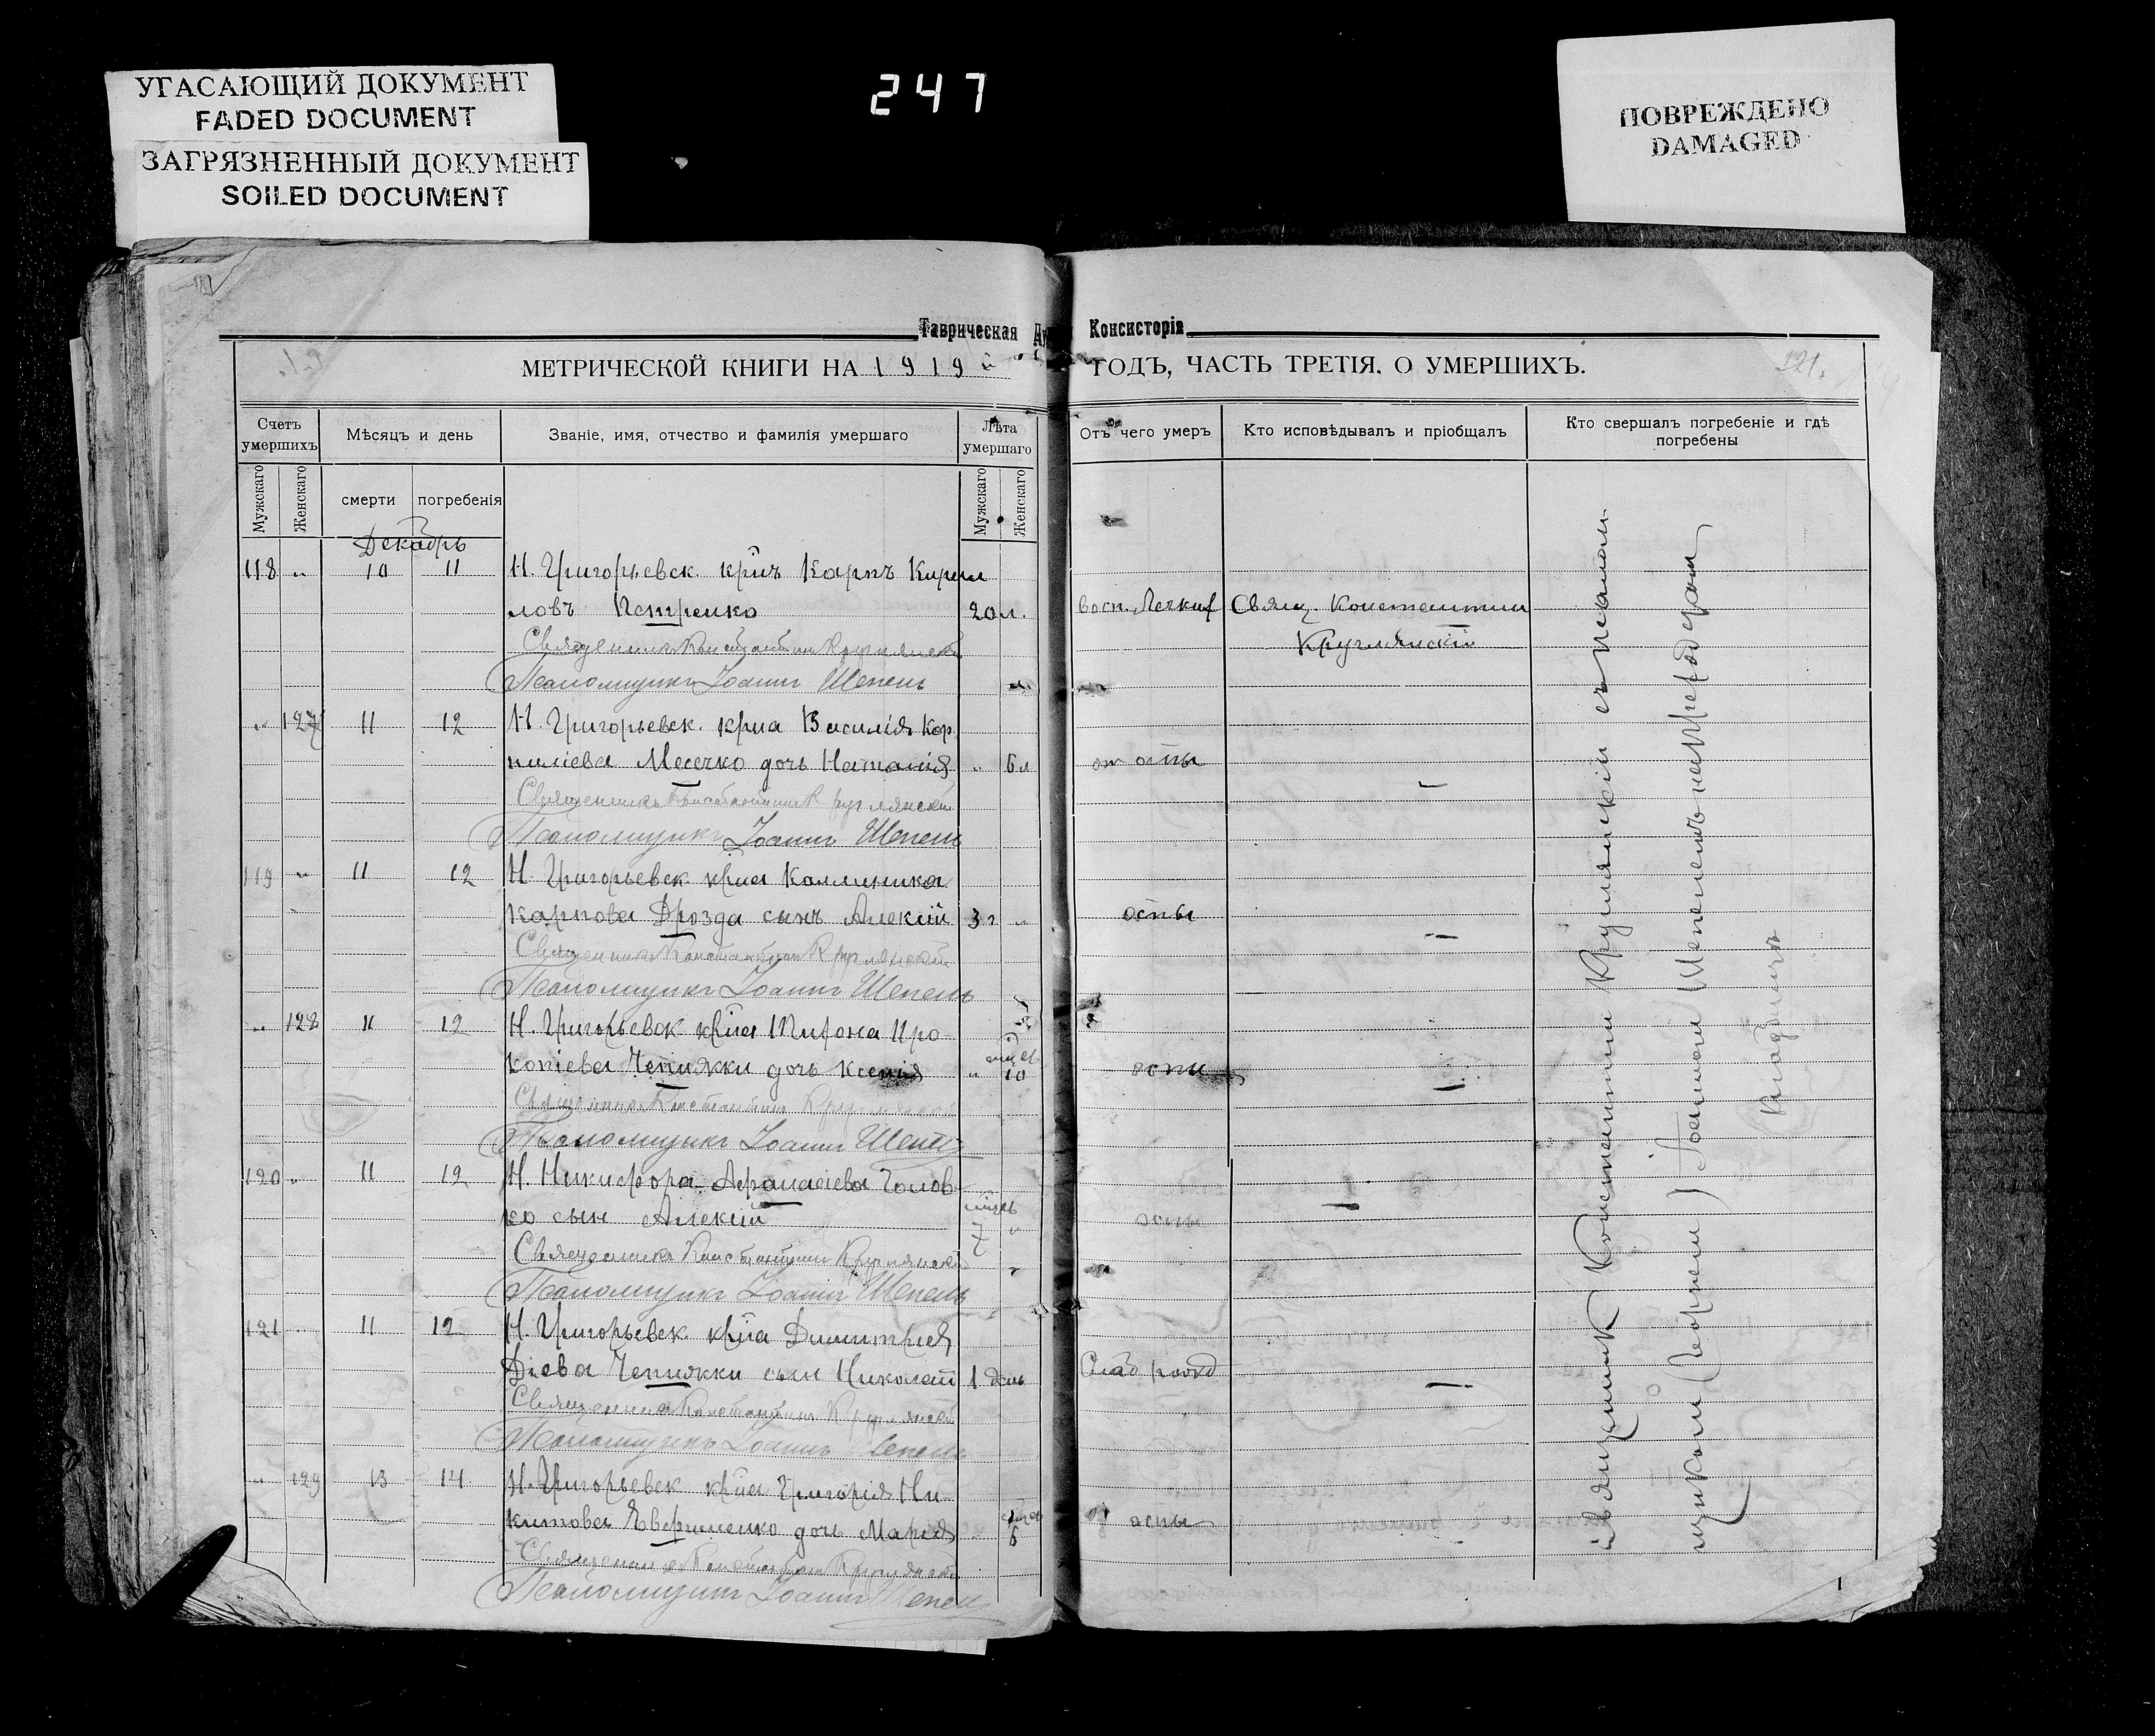 УГАСАЮЩИЙ ДОКУМЕНТ
FADED DOCUMENT
ЗАГРЯЗНЕННЫЙ ДОКУМЕНТ
SOILED DOCUMENT
247
ПОВРЕЖДЕНО
DAMAGED
Таврическая Консисторія
МЕТРИЧЕСКОЙ КНИГИ НА 1919 ГОДЪ, ЧАСТЬ ТРЕТІЯ, О УМЕРШИХЪ.
121.
Счетъ умершихъ
Мѣсяцъ и день
Званіе, имя, отчество и фамилія умершаго
Лѣта умершаго
Отъ чего умеръ
Кто исповѣдывалъ и пріобщалъ
Кто свершалъ погребеніе и гдѣ погребены
Мужскаго
Женскаго
смерти
погребенія
Мужскаго
Женскаго
Декабрь
118 „ 10 11 Н. Григорьевск. кр͠нъ Карпъ Кирил
ловъ Петренко 20 л. восп. Легких Свящ. Константин
Круглянскій
Священникъ Константинъ Круглянскій
Псаломщикъ Іоаннъ Шепель
„ 127 11 12 Н. Григорьевск. кр͠на Василія Кор
ниліева Месечко дочь Наталія „ 6 л от оспы
Священникъ Константинъ Круглянскій
Псаломщикъ Іоаннъ Шепель
119 „ 11 12 Н. Григорьевск. кр͠на Каллиника
Карпова Дрозда сынъ Алексій 3 г „ оспы
Священникъ Константинъ Круглянскій
Псаломщикъ Іоаннъ Шепель
„ 128 11 12 Н. Григорьевск кр͠на Про
копіева Чепижки дочь Ксенія „ 10 оспы
Священникъ Константинъ Круглянскій
Псаломщикъ Іоаннъ Шепель
120 „ 11 12 Н. Никифора Афанасіева Голов
ко сын Алексій „ оспы
Священникъ Константинъ Круглянскій
Псаломщикъ Іоаннъ Шепель
121 11 12 Н. Григорьевск кр͠на Димитрія
Чепижки сын Николай 1 день Слаб
Священникъ Константинъ Круглянскій
Псаломщикъ Іоаннъ Шепель
„ 129 13 14 Н. Григорьевск кр͠на Григорія Ни
китова Евфименко дочь Марія 6 от оспы
Священникъ Константинъ Круглянскій
Псаломщикъ Іоаннъ Шепель
Священник Константин Круглянскій съ псалом
щиком Іоанном Шепелемъ на
кладбищѣ